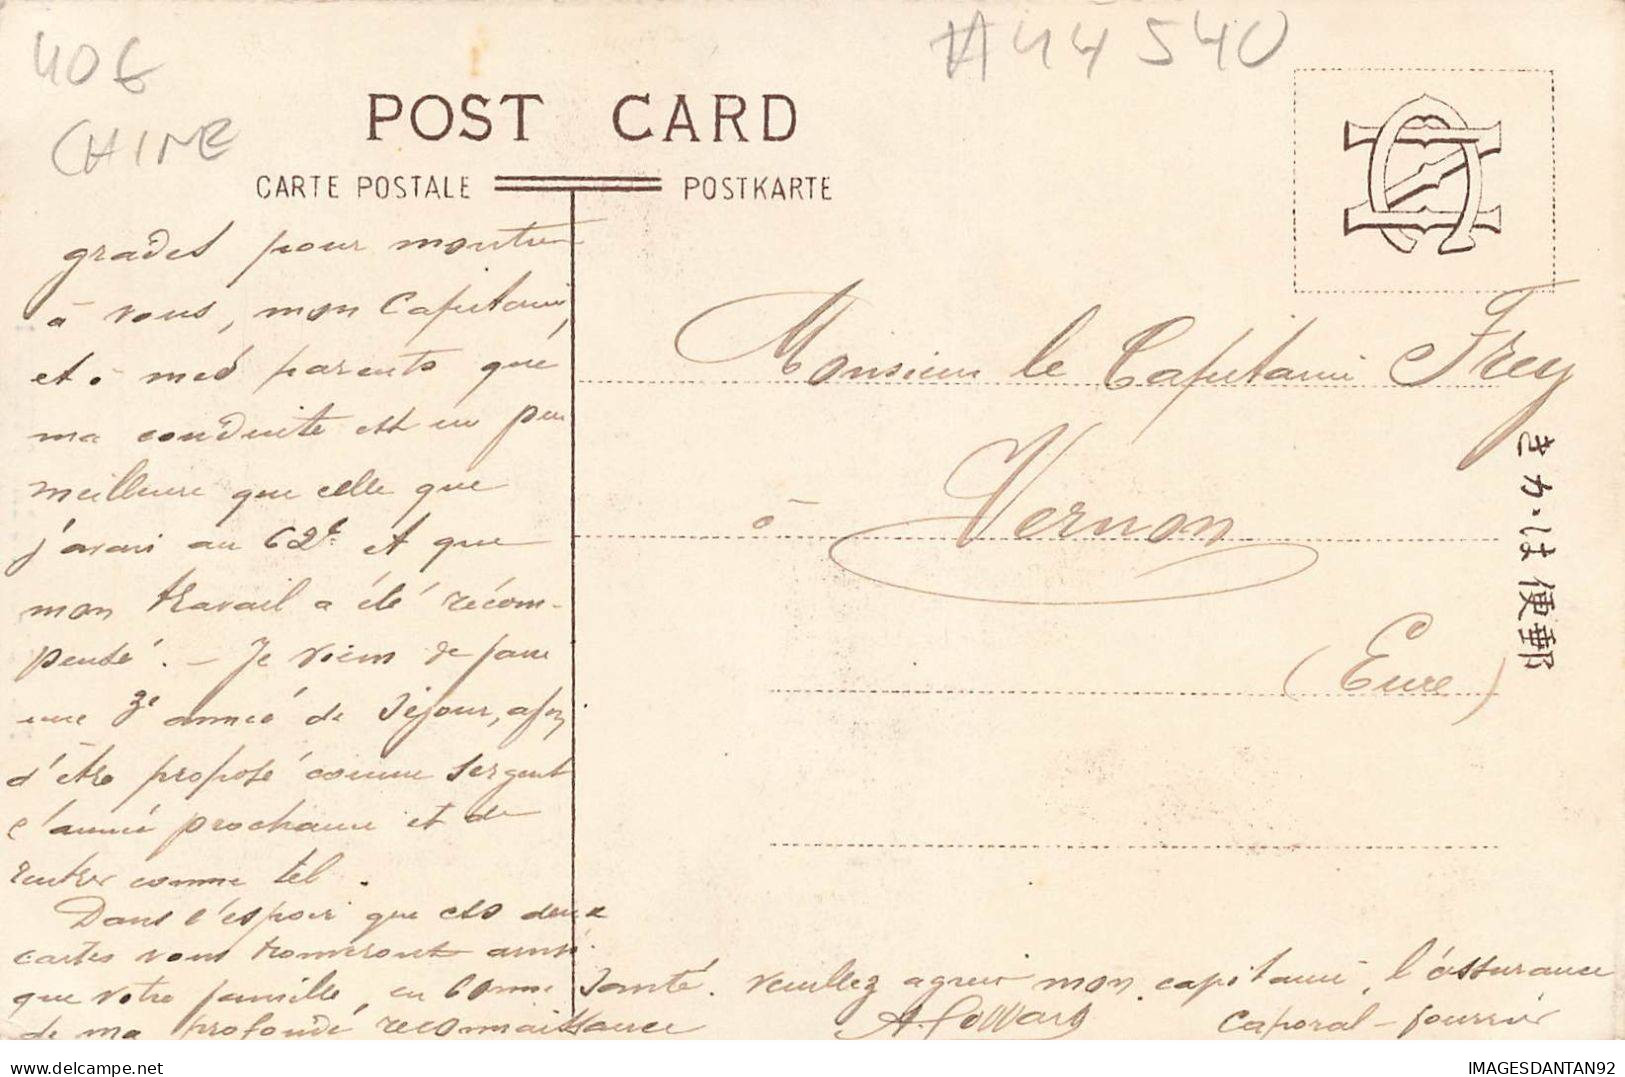 40€
CHINE
#44540
POST CARD
CARTE POSTALE
POSTKARTE
grades pour montrer
à vous, mon Capitaine,
et à mes parents que
ma conduite est un peu
meilleure que celle que
j'avais au 62e et que
mon travail a été récom-
pensé. – Je viens de faire
une 3e année de séjour, afin
d'être proposé comme sergent
l'année prochaine et de
rentrer comme tel.
Dans l'espoir que ces deux
cartes vous trouveront ainsi
que votre famille, en bonne santé. Veuillez agréer mon capitaine, l'assurance
de ma profonde reconnaissance
Caporal-fourrier
Monsieur le Capitaine Frey
à Vernon
(Eure)
きか・は便郵
IMAGESDANTAN92